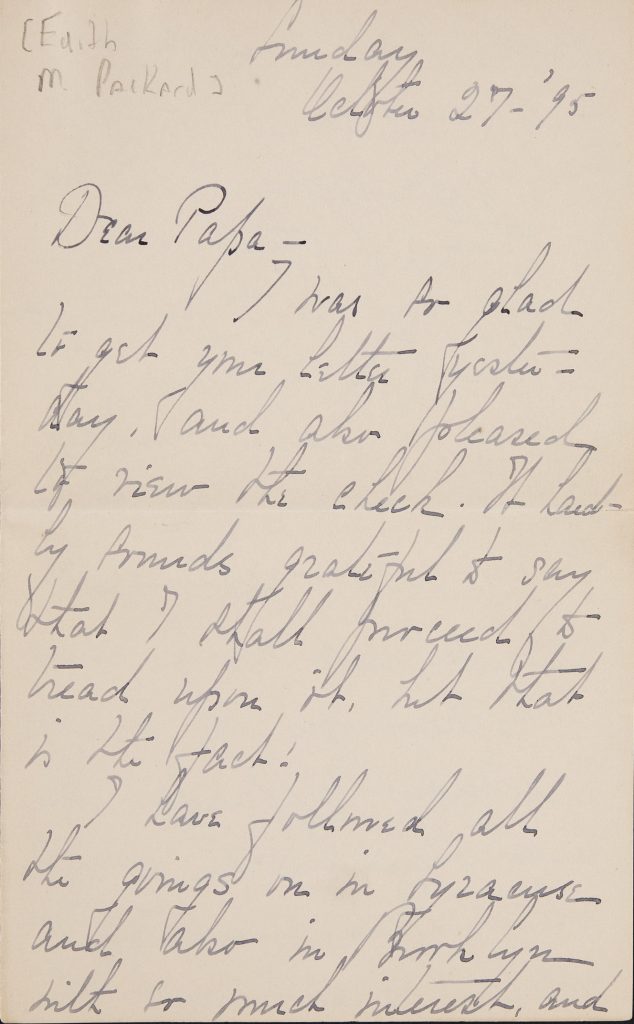 [Edith
M. Packard]
Sunday
October 27-'95
Dear Papa -
I was so glad
to get your letter yester=
day, and also pleased
to view the check. It hard-
ly sounds grateful to say
that I shall proceed to
tread upon it, but that
is the fact!
I have followed all
the goings on in Syracuse
and also in Brooklyn
with so much interest, and